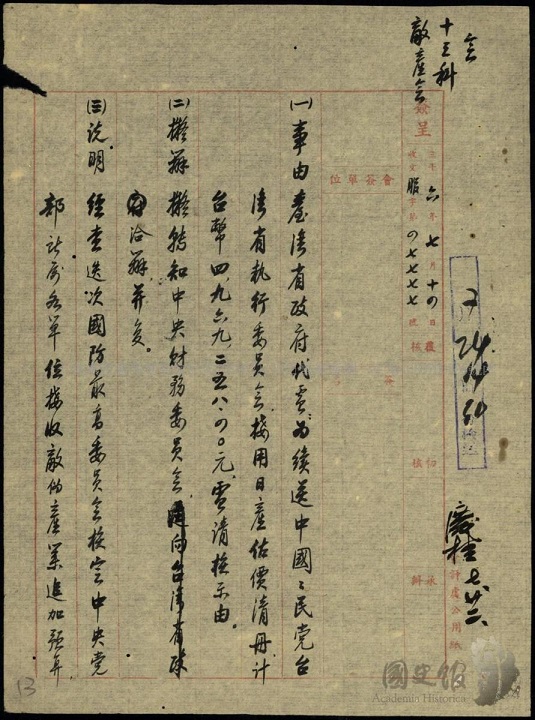 會
十三科
敵產會
簽呈
會簽單位
卅六年七月十四日
收文 字第 四七七七七 號
覆核
初核
承辦
計處公用紙
七、廿二
(一)事由 臺灣省政府代電：為續送中國國民党台
灣省執行委員會接用日產估價清冊計
台幣四、九六九、二五八・四〇元，電請核示由。
(二)擬辦 擬轉知中央財務委員會逕向台灣省政
府洽辦并復。
(三)說明 經查迭次國防最高委員會核定中央党
部所屬各單位接收敵偽產業追加預算
13
國史館
Academia Historica